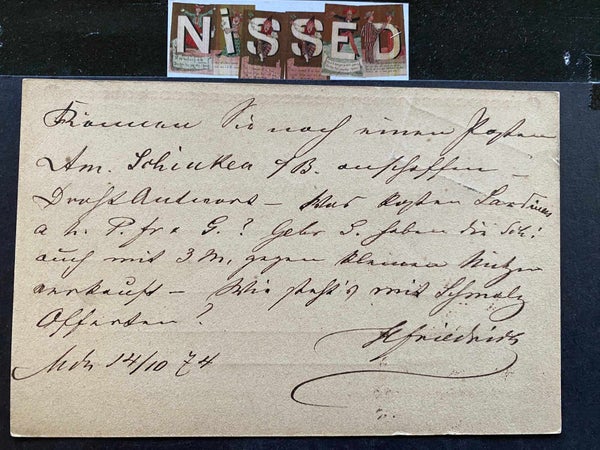 NiSSED
Können Sie noch einen Posten
Am. Schinken s/B. anschaffen –
Draht Antwort – Was kosten Sardinen
a n. P. fr G.? Gebr S. haben die Sch.
auch mit 3 M. gegen kleinen Nutzen
verkauft – Wie steht's mit Schmalz
Offerten?
HFriedrich
14/10 74